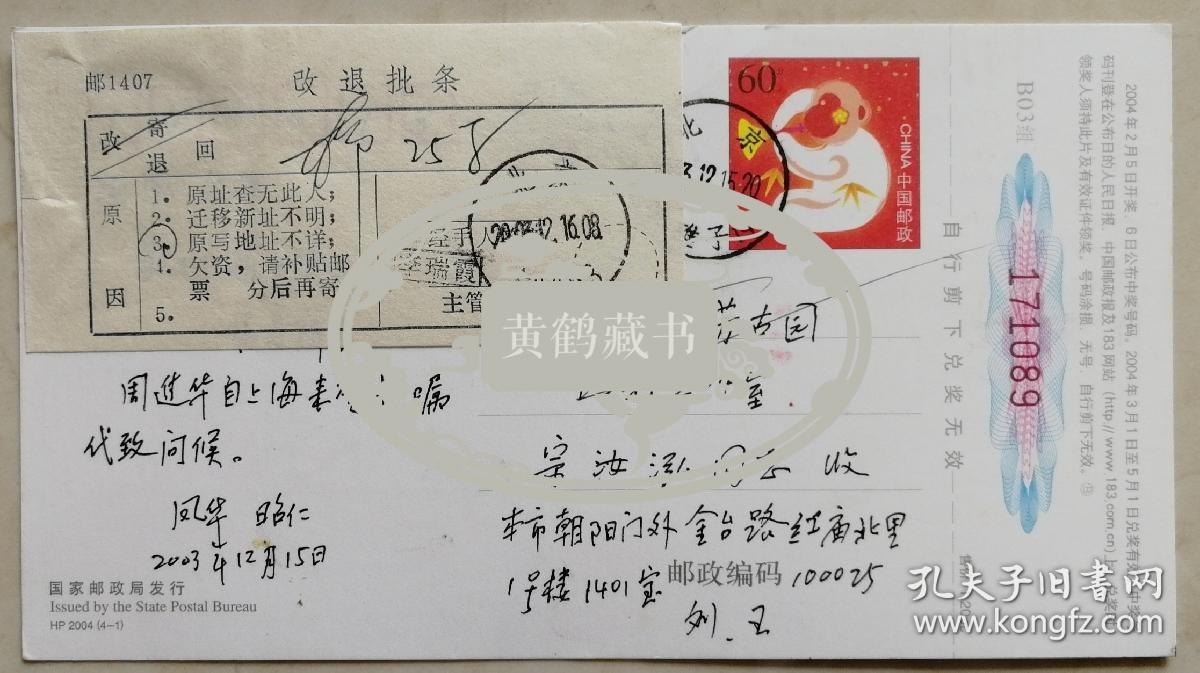 邮1407 改退批条
改寄退回 25
原因
1. 原址查无此人;
2. 迁移新址不明;
3. 原写地址不详;
4. 欠资,请补贴邮
票 分后再寄
5.
经手人
李瑞霞
主管
北京
2003.12.16.08
60
CHINA 中国邮政
北京
12.15.20
古园
室
宗汝 收
本市朝阳门外金台路红庙北里
1号楼1401室 邮政编码 100025
刘、王
周进华自上海 嘱
代致问候。
凤华 昭仁
2003年12月15日
国家邮政局发行
Issued by the State Postal Bureau
HP 2004 (4-1)
自行剪下兑奖无效
B03组
171089
2004年2月5日开奖,6日公布中奖号码。2004年3月1日至5月1日兑奖有效。中奖
码刊登在公布日的人民日报、中国邮政报及183网站 (http://www.183.com.cn) 上。兑奖
领奖人须持此片及有效证件领奖。号码涂损、无号、自行剪下无效。
黄鹤藏书
孔夫子旧书网
www.kongfz.com